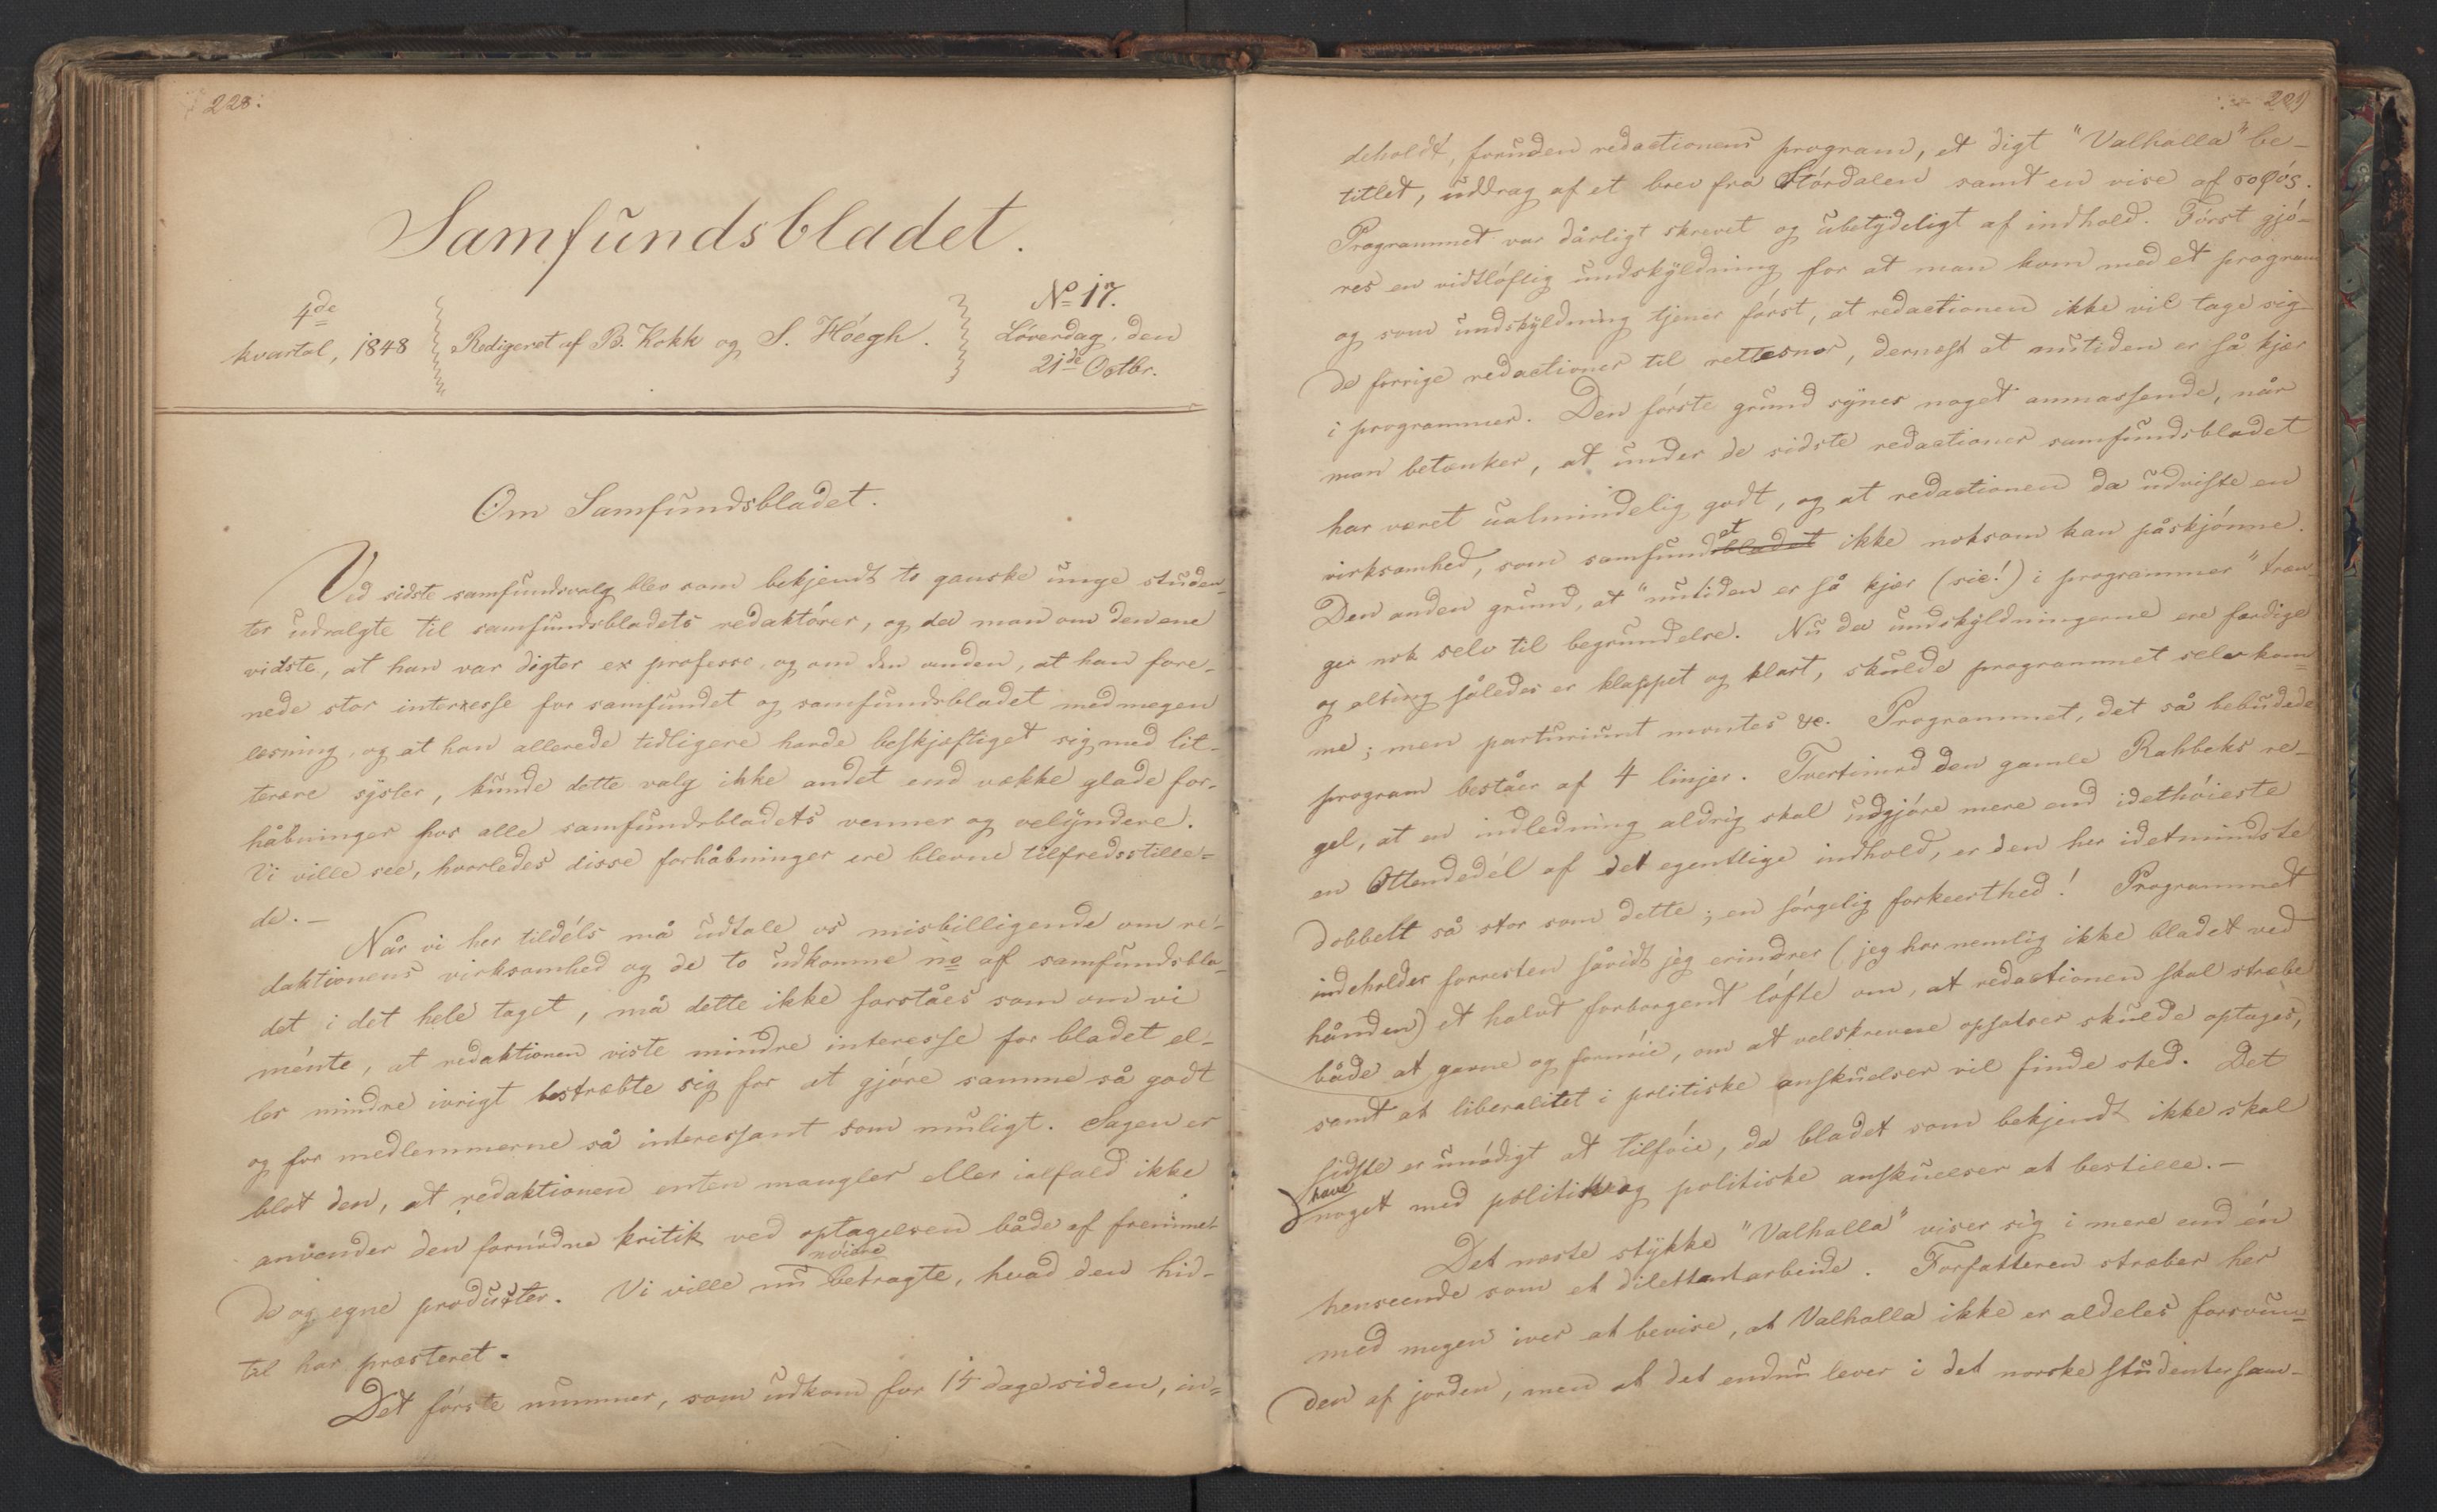 228:
Samfundsbladet.
4de
kvartal, 1848
Redigeret af B. Kokk og S. Höegh.
No 17.
Löverdag, den
21de Octbr.
Om Samfundsbladet.
Ved sidste samfundsvalg blev som bekjendt to ganske unge studen-
ter udvalgte til samfundsbladets redaktörer, og da man om den ene
vidste, at han var digter ex professo, og om den anden, at han fore-
nede stor interesse for samfundet og samfundsbladet med megen
læsning, og at han allerede tidligere havde beskjæftiget sig med lit-
terære sysler, kunde dette valg ikke andet end vække glade for-
håbninger hos alle samfundsbladets venner og velyndere.
Vi ville see, hvorledes disse forhåbninger ere blevne tilfredsstille-
de. —
Når vi her tildéls må udtale os misbilligende om re-
daktionens virksomhed og de to udkomne no af samfundsbla-
det i det hele taget, må dette ikke forståes som om vi
ménte, at redaktionen viste mindre interesse for bladet el-
ler mindre ivrigt bestræbte sig for at gjöre samme så godt
og for medlemmerne så interessant som muligt. Sagen er
blot den, at redaktionen enten mangler eller ialfald ikke
anvender den fornödne kritik ved optagelsen både af fremme-
de og egne producter. Vi ville nu nöiere betragte, hvad den hid-
til har præsteret.
Det förste nummer, som udkom for 14 dage siden, in-
229
deholdt, foruden redactionens program, et digt "Valhalla" be-
titlet, uddrag af et brev fra Stördalen samt en vise af σοφός.
Programmet var dårligt skrevet og ubetydeligt af indhold. Först gjö-
res en vidtlöftig undskyldning for at man kom med et program
og som undskyldning tjener först, at redactionen ikke vil tage sig
de forrige redactioner til rettesnor, dernæst at nutiden er så kjær
i programmer. Den förste grund synes noget anmassende, når
man betænker, at under de sidste redactioner samfundsbladet
har været ualmindelig godt, og at redactionen da udviste en
virksomhed, som samfundet ikke noksom kan påskjönne.
Den anden grund, at "nutiden er så kjær (sic!) i programmer" træn-
ger nok selv til begrundelse. Nu da undskyldningerne ere færdige
og alting således er klappet og klart, skulde programmet selv kom-
me; men parturiunt montes &c. Programmet, det så bebudede
program består af 4 linjer. Tvertimod den gamle Rahbeks re-
gel, at en indledning aldrig skal udgjöre mere end idethöieste
en Ottendedél af det egentlige indhold, er den her idetmindste
dobbelt så stor som dette; en sörgelig forkeerthed! Programmet
indeholder forresten såvidt jeg erindrer (jeg har nemlig ikke bladet ved
hånden) et halvt forborgent löfte om, at redactionen skal stræbe
både at gavne og fornöie, om at velskrevne opsatser skulde optages,
samt at liberalitet i politiske anskuelser vil finde sted. Det
sidste er unödigt at tilföie, da bladet som bekjendt ikke skal
have noget med politik og politiske anskuelser at bestille. —
Det næste stykke "Valhalla" viser sig i mere end én
henseende som et dilettantarbeide. Forfatteren stræber her
med megen iver at bevise, at Valhalla ikke er aldeles forsvun-
den af jorden, men at det endnu lever i det norske studentersam-